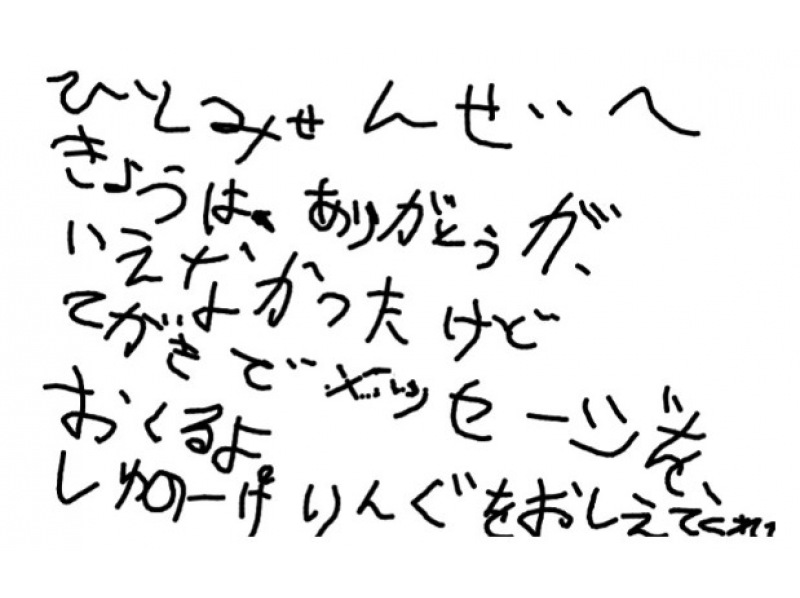 ひとみせんせいへ
きょうは、ありがとうが、
いえなかったけど
てがきでメッセージを、
おくるよ
しゅのーげりんぐをおしえてくれ